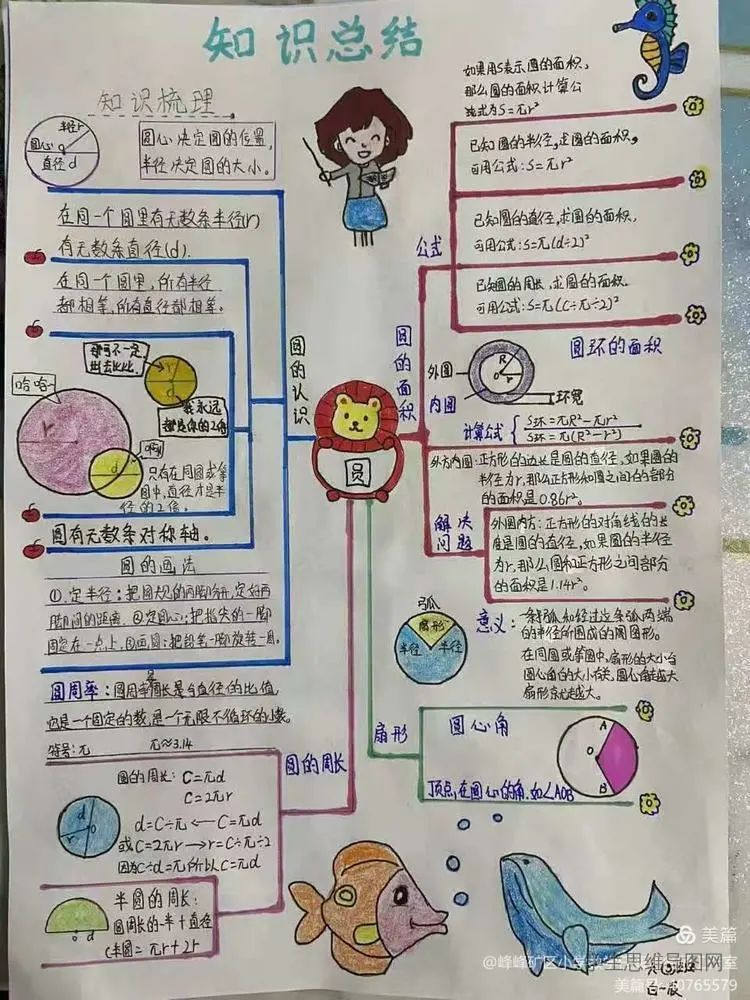 知识总结
知识梳理
半径r
圆心o
直径d
圆心决定圆的位置,
半径决定圆的大小。
在同一个圆里有无数条半径(r)
有无数条直径(d).
在同一个圆里,所有半径
都相等,所有直径都相等。
哈哈~
r
d
只有在同圆或等
圆中,直径才是半
径的2倍。
圆有无数条对称轴。
圆的画法
①.定半径:把圆规的两脚分开,定好两
脚间的距离.②定圆心:把指尖的一脚
固定在一点上,③画圆:把铅笔一脚旋转一周。
圆周率:
是一个固定的数,是一个无限不循环的小数。
符号:π π≈3.14
圆的认识
圆
圆的周长
圆的周长:C=πd
C=2πr
d=C÷π←C=πd
或C=2πr→r=C÷π÷2
因为C÷d=π所以C=πd
d
r
O
半圆的周长:
圆周长的一半+直径
C半圆=πr+2r
o d
如果用S表示圆的面积,
那么圆的面积计算公
式为S=πr²
已知圆的半径,求圆的面积,
可用公式:S=πr²
公式
已知圆的直径,求圆的面积,
可用公式:S=π(d÷2)²
已知圆的周长,求圆的面积.
可用公式:S=π(C÷π÷2)²
圆的面积
圆环的面积
外圆
内圆
R
O
r
环宽
计算公式
S环=πR²-πr²
S环=π(R²-r²)
外方内圆:正方形的边长是圆的直径,如果圆的
半径为r,那么正方形和圆之间的部分
的面积是0.86r².
解决
问题
外圆内方:正方形的对角线的长
度是圆的直径,如果圆的半径
为r,那么圆和正方形之间部分
的面积是1.14r².
弧
扇形
半径 半径
意义:
一条弧和经过这条弧两端
的半径所围成的图形。
在同圆或等圆中,扇形的大小与
圆心角的大小有关,圆心角越大
扇形就越大。
扇形
圆心角
A
O
B
顶点在圆心的角.如∠AOB
美篇